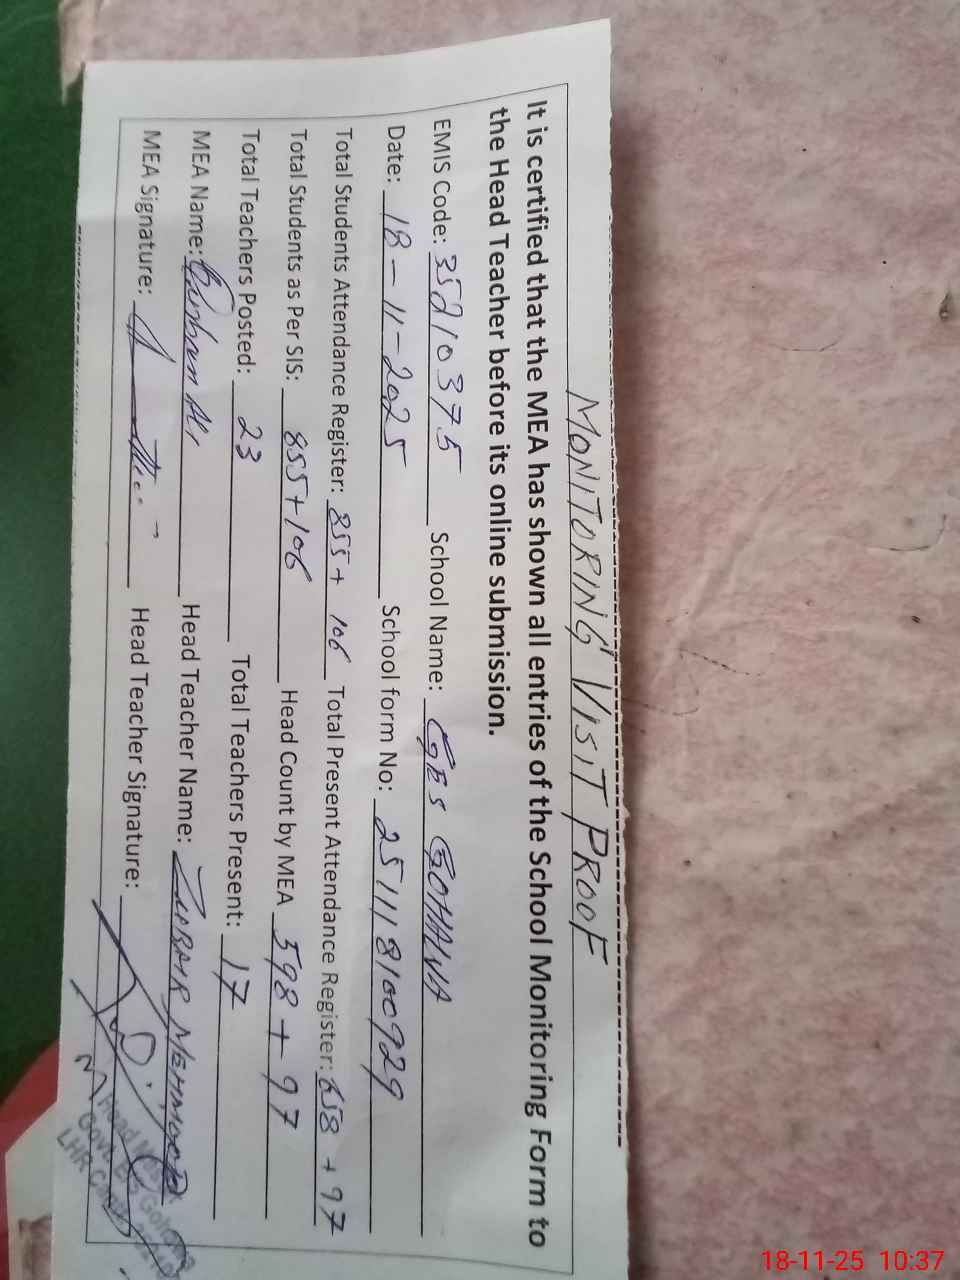 MONITORING VISIT PROOF
It is certified that the MEA has shown all entries of the School Monitoring Form to
the Head Teacher before its online submission.
EMIS Code: 35210375 School Name: GES GOHAWA
Date: 18-11-2025 School form No: 251118100929
Total Students Attendance Register: 855+ 106 Total Present Attendance Register: 658 +97
Total Students as Per SIS: 855+106 Head Count by MEA 598 + 97
Total Teachers Posted: 23 Total Teachers Present: 17
MEA Name: Ali Head Teacher Name: ZUBAIR MEHMOOD
MEA Signature: Head Teacher Signature:
Head
Govt. E
LHR Cantt
18-11-25 10:37